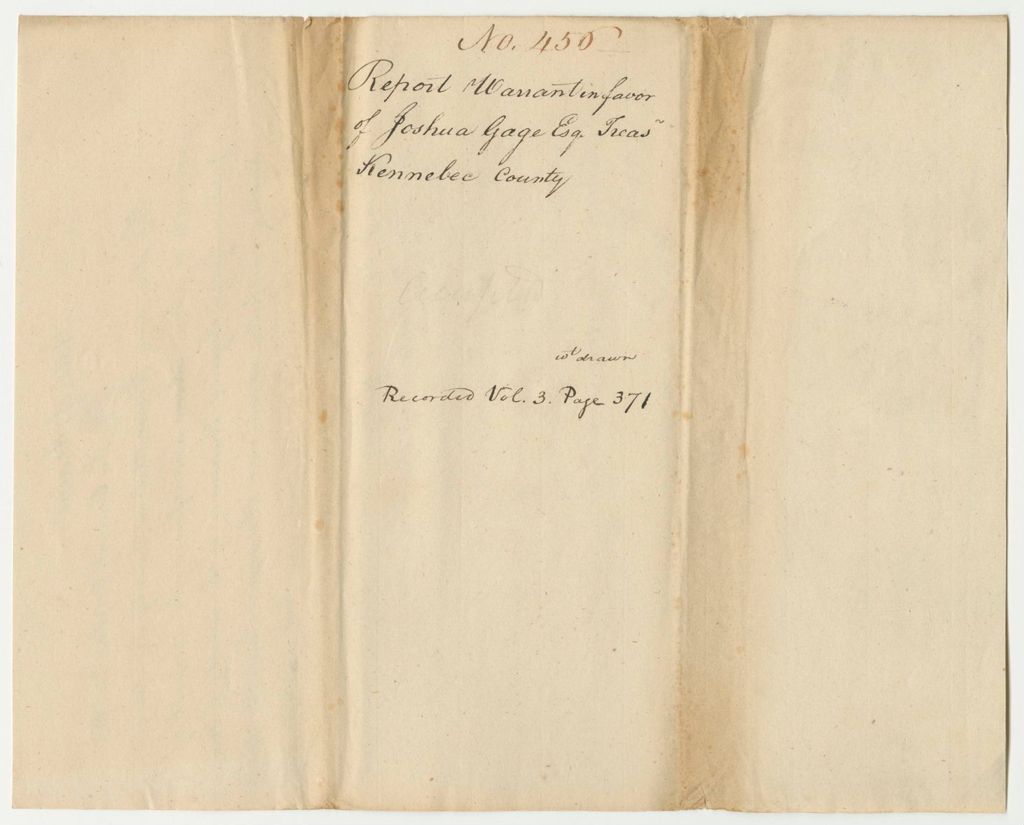 No. 450
Report Warrant in favor
of Joshua Gage Esq. Treasr
Kennebec County
Accepted
wt drawn
Recorded Vol. 3. Page 371